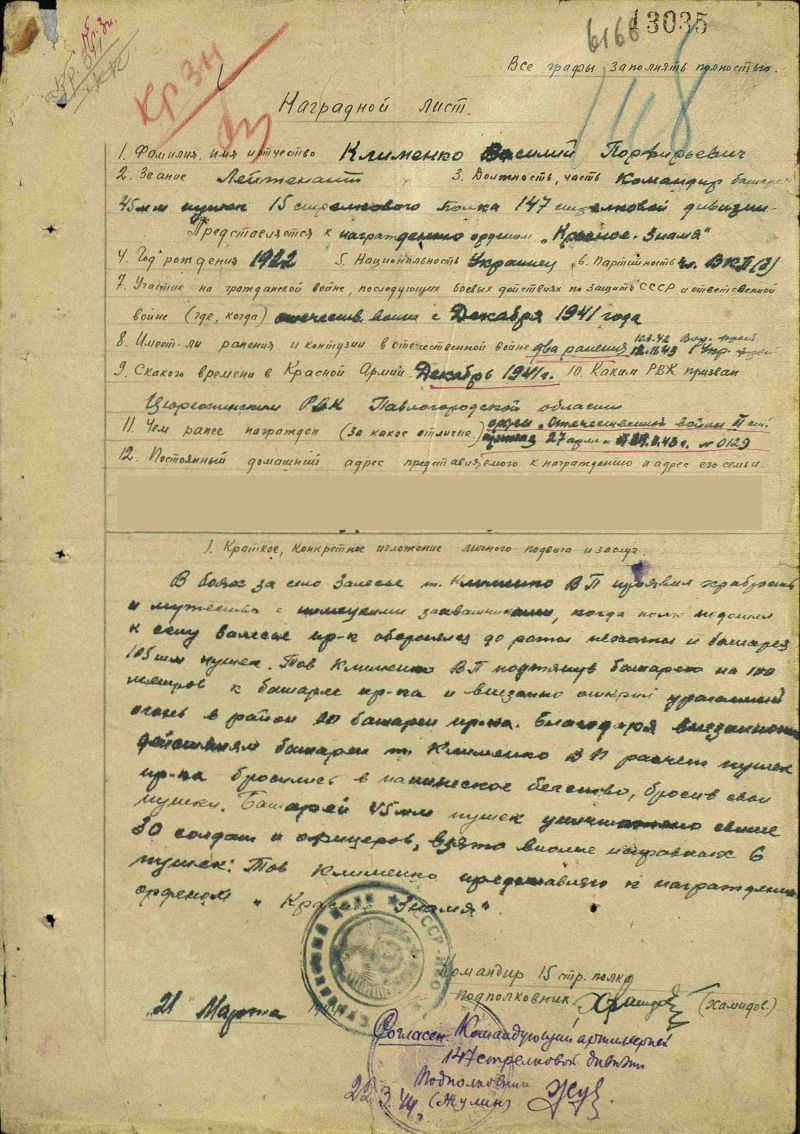 13035
6166
Все графы заполнять полностью.
КРЗН
Наградной лист.
1. Фамилия, имя и отчество Клименко Василий Порфирьевич
2. Звание Лейтенант 3. Должность, часть Командир батареи
45мм пушек 15 стрелкового полка 147 стрелковой дивизии
Представляется к награждению орденом „Красное-Знамя"
4. Год рождения 1922 5. Национальность Украинец 6. Партийность чл. ВКП(б)
7. Участие на гражданской войне, последующих боевых действиях по защите СССР и отечественной
войне (где, когда) отечеств. война с Декабря 1941 года
8. Имеет-ли ранения и контузии в отечественной войне два ранения 1 Укр.
9. С какого времени в Красной Армии Декабрь 1941 г. 10. Каким РВК призван
РВК Павлогородской области
11. Чем ранее награжден (за какое отличие) орден „Отечественной войны II
приказ 27 арм. № 0129
12. Постоянный домашний адрес представляемого к награждению и адрес его семьи.
1. Краткое, конкретное изложение личного подвига и заслуг.
В боях за село Залесье т. Клименко В П проявил храбрость
и мужество с немецкими захватчиками, когда полк подошел
к селу Залесье пр-к оборонялся до роты пехоты и батарея
105 мм пушек. Тов Клименко ВП подтянув батарею на 100
метров к батареи пр-ка и внезапно открыл ураганный
огонь в район батареи пр-ка. Благодаря внезапности
действиям батареи т. Клименко В П расчет пушек
пр-ка бросились в паническое бегство, бросив свои
пушки. Батареей 45мм пушек уничтожено свыше
30 солдат и офицеров, взято вполне исправных 6
пушек. Тов Клименко представляю к награждению
орденом „Красное Знамя".
Командир 15 стр. полка
подполковник (Хамидов.)
„21" Марта
Согласен. Командующий артиллерией
147 стрелковой дивизии
Подполковник
(Жулин)
22.3.44 г.